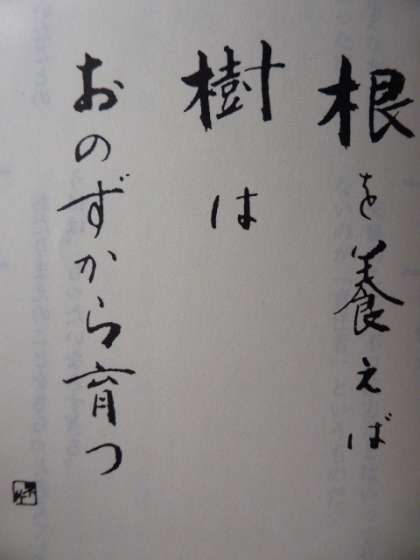 根を養えば
樹は
おのずから育つ